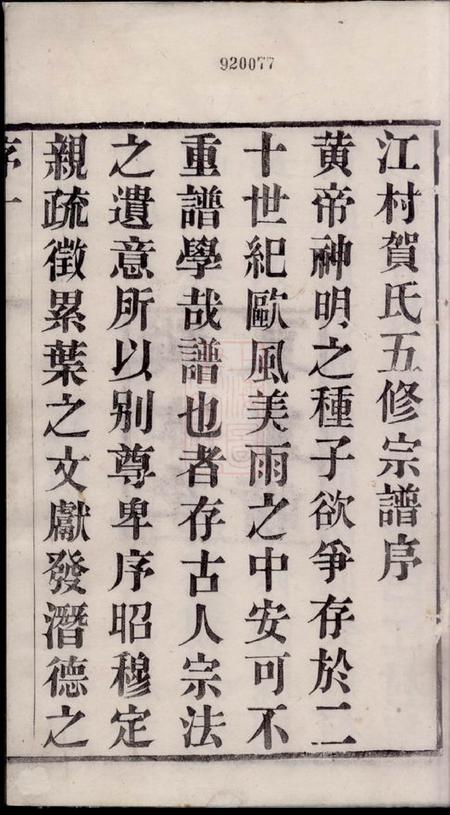 920077
江村賀氏五修宗譜序
黃帝神明之種子欲爭存於二
十世紀歐風美雨之中安可不
重譜學哉譜也者存古人宗法
之遺意所以別尊卑序昭穆定
親疏徵累葉之文獻發潛德之
序一